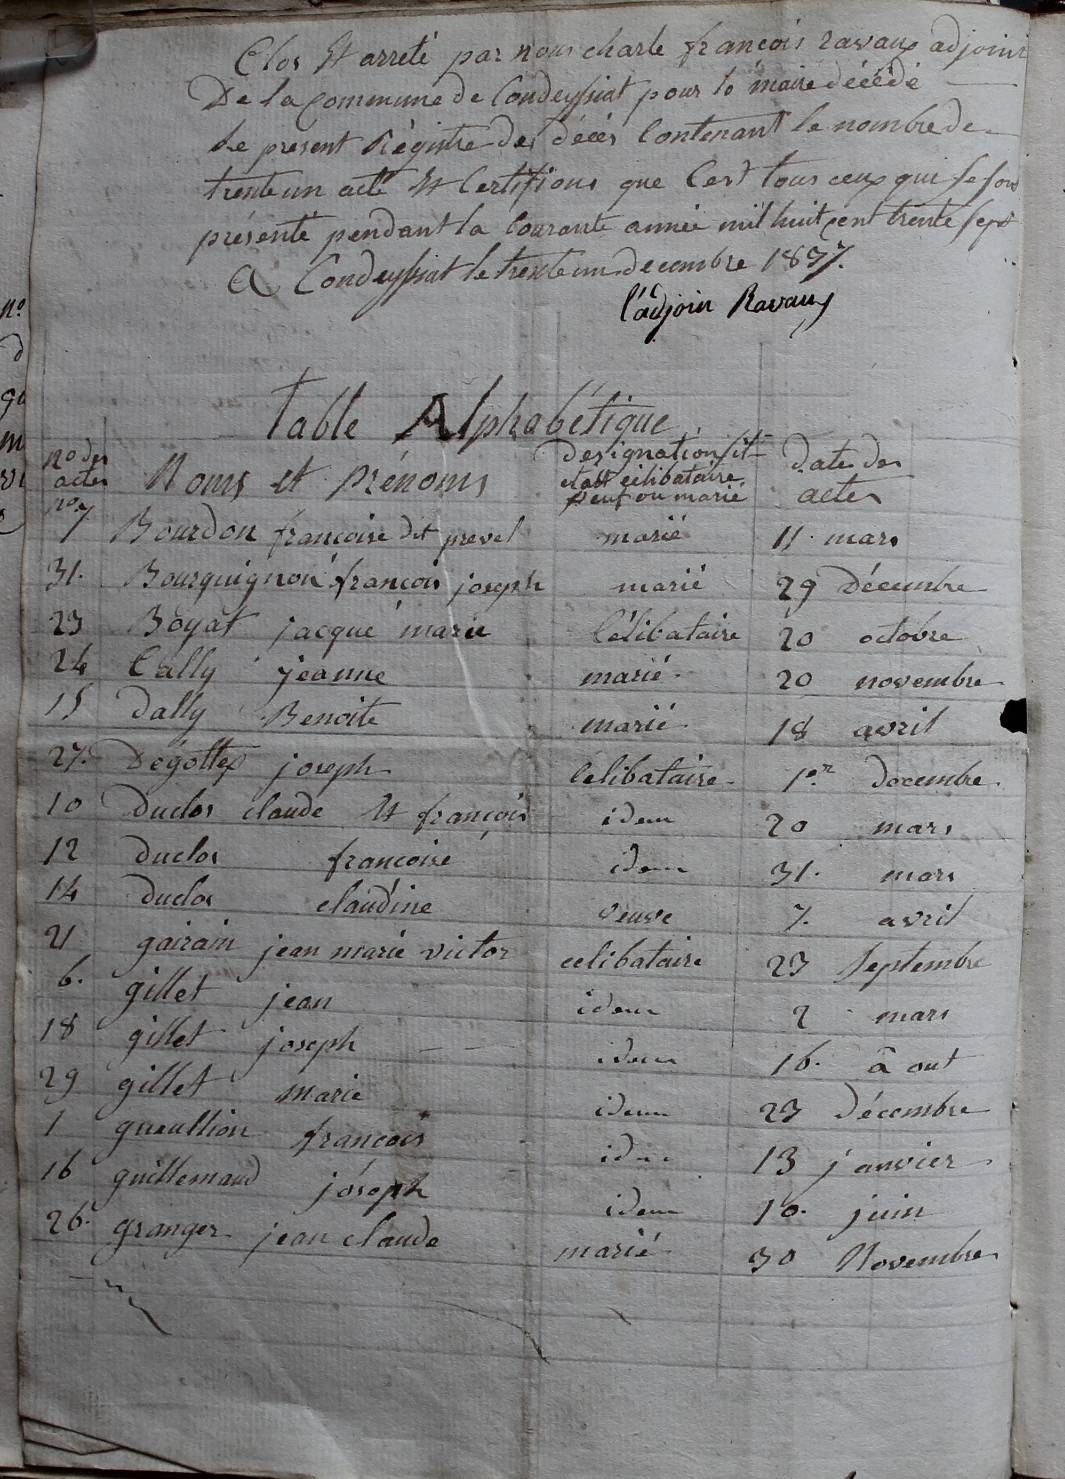 Clos Et arreté par nous charle françois ravaux adjoint
De la Commune de Condeyssiat pour le maire décédé
Le present Régistre des décés Contenant le nombre de
trente un acte Et Certifions que C'est tous ceux qui se sont
présenté pendant la Courante année mil huit cent trente sept
A Condeyssiat le trente un decembre 1837.
l'adjoin Ravaux
Table Alphabétique
no des actes Noms et Prénoms designation s'il etait célibataire veuf ou marié Dates des actes
no 7 Bourdon françoise dit prevel marié 11 mars
31. Bourguignon françois joseph marié 29 Décembre
23 Boyat jacque marie Célibataire 20 octobre
24 Cally jeanne marié 20 novembre
15 Dally Benoite marié 18 avril
27. Dégottex joseph Celibataire 1er Decembre
10 Duclos claude Et françois idem 20 mars
12 Duclos françoise idem 31. mars
14 Duclos claudine veuve 7. avril
21 gairain jean marie victor celibataire 23 Septembre
6. gillet jean idem 2 mars
18 gillet joseph idem 16. août
29 gillet marie idem 23 Décembre
1 gueullion françois idem 13 janvier
16 guillemaud joseph idem 10. juin
26. granger jean claude marié 30 Novembre